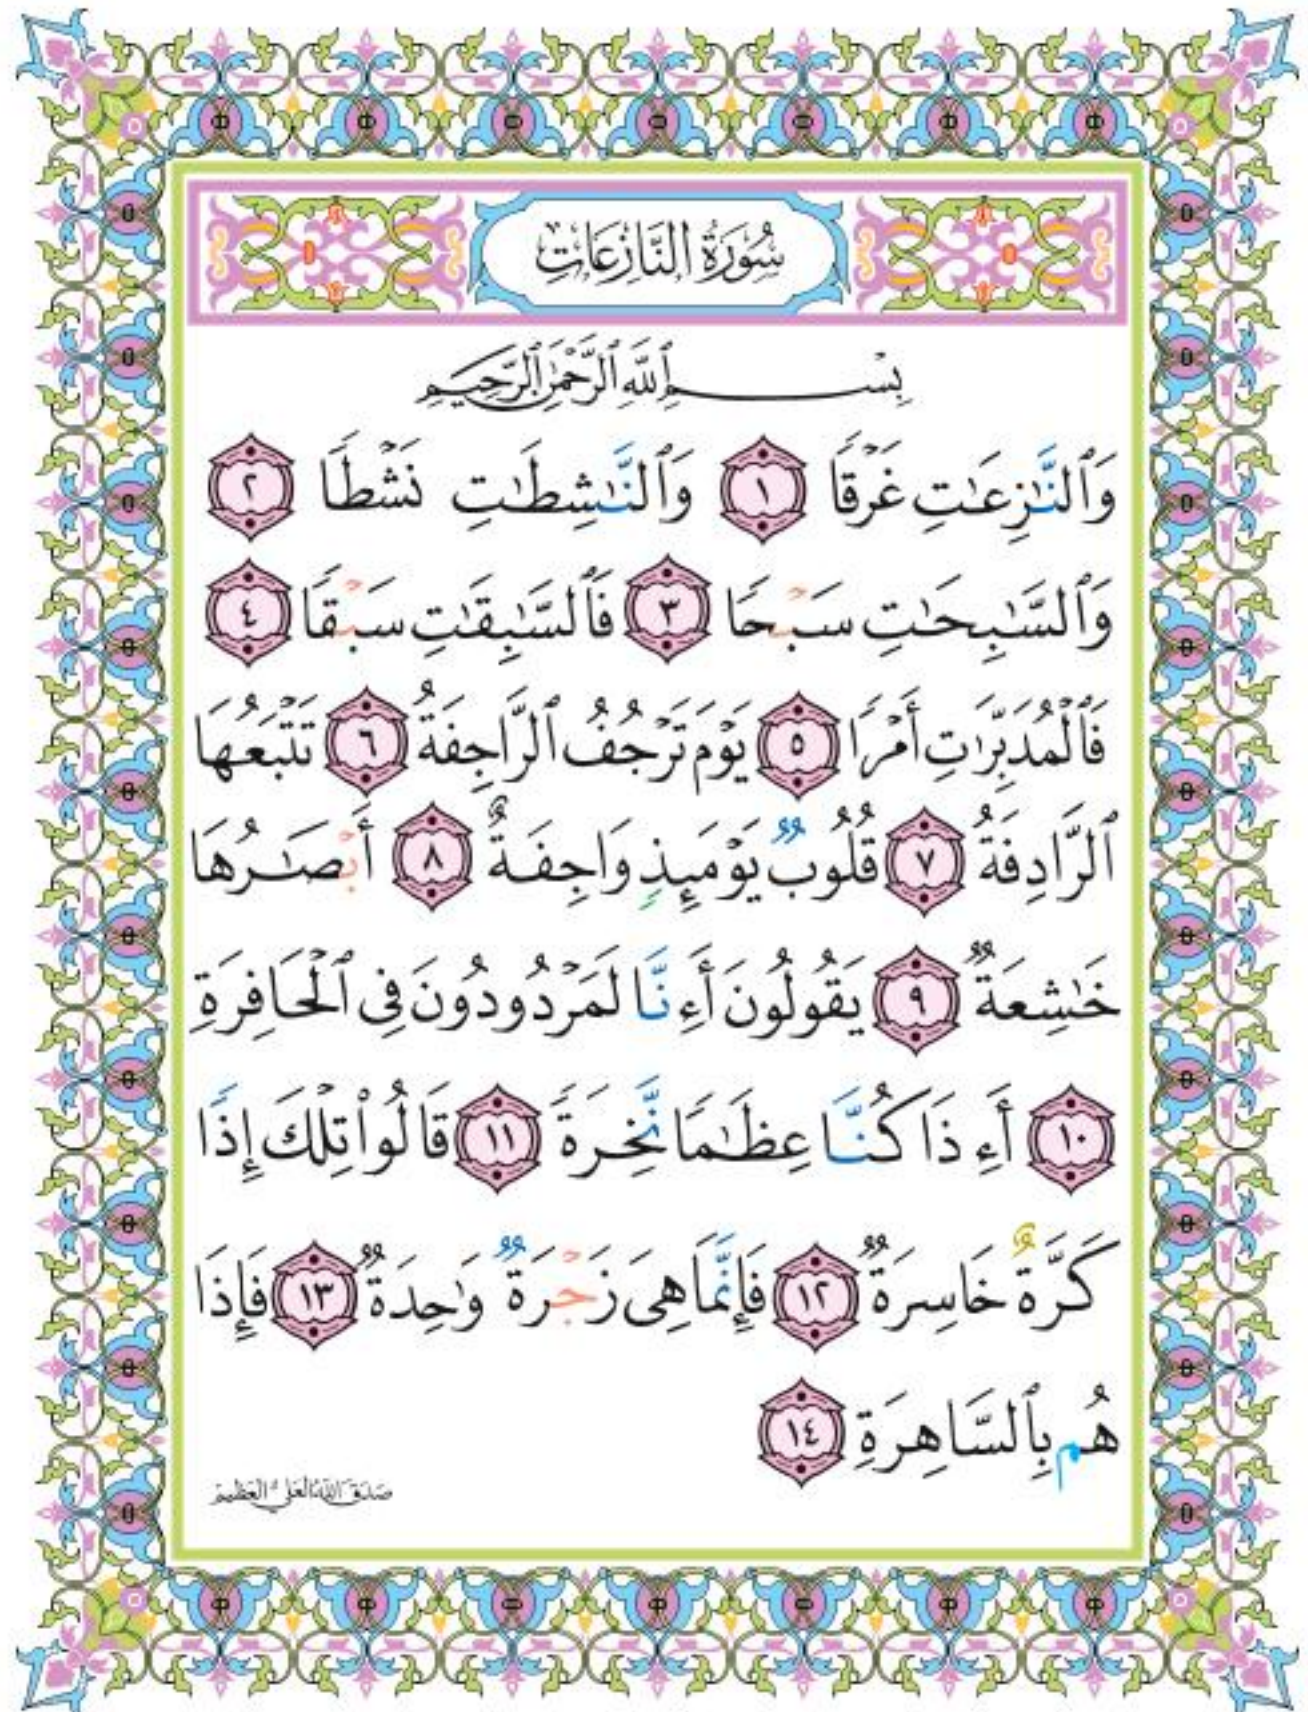 سُورَةُ النَّازِعَاتِ
بِسْمِ ٱللَّهِ ٱلرَّحْمَٰنِ ٱلرَّحِيمِ
وَٱلنَّٰزِعَٰتِ غَرْقًا ١ وَٱلنَّٰشِطَٰتِ نَشْطًا ٢
وَٱلسَّٰبِحَٰتِ سَبْحًا ٣ فَٱلسَّٰبِقَٰتِ سَبْقًا ٤
فَٱلْمُدَبِّرَٰتِ أَمْرًا ٥ يَوْمَ تَرْجُفُ ٱلرَّاجِفَةُ ٦ تَتْبَعُهَا
ٱلرَّادِفَةُ ٧ قُلُوبٌ يَوْمَئِذٍ وَاجِفَةٌ ٨ أَبْصَٰرُهَا
خَٰشِعَةٌ ٩ يَقُولُونَ أَءِنَّا لَمَرْدُودُونَ فِى ٱلْحَافِرَةِ
١٠ أَءِذَا كُنَّا عِظَٰمًا نَّخِرَةً ١١ قَالُوا۟ تِلْكَ إِذًا
كَرَّةٌ خَاسِرَةٌ ١٢ فَإِنَّمَا هِىَ زَجْرَةٌ وَٰحِدَةٌ ١٣ فَإِذَا
هُم بِٱلسَّاهِرَةِ ١٤
صَدَقَ اللَّهُ الْعَلِيُّ الْعَظِيمُ